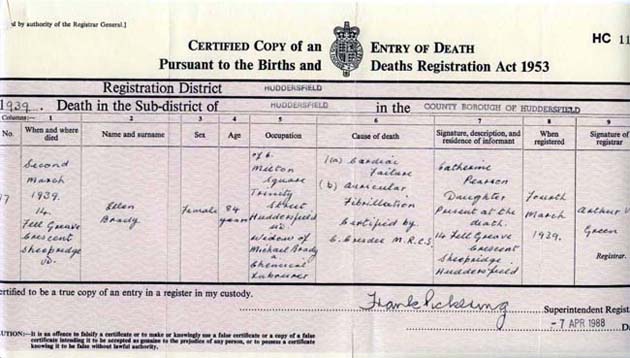 d by authority of the Registrar General.]
HC 11
CERTIFIED COPY of an ENTRY OF DEATH
Pursuant to the Births and Deaths Registration Act 1953
Registration District HUDDERSFIELD
1939. Death in the Sub-district of HUDDERSFIELD in the COUNTY BOROUGH OF HUDDERSFIELD
Columns:— 1 2 3 4 5 6 7 8 9
No. When and where died Name and surname Sex Age Occupation Cause of death Signature, description, and residence of informant When registered Signature of registrar
7
Second
March
1939.
14
Fell Greave
Crescent
Sheepridge
UD.
Ellen
Brady
Female
84
years
of 6.
Milton
Square
Trinity
Street
Huddersfield
UD.
Widow of
Michael Brady
a
Chemical
Labourer
(a) Cardiac
Failure
(b) Auricular
Fibrillation
Certified by
M.R.C.S.
Catherine
Pearson
Daughter
Present at the
death.
14 Fell Greave
Crescent
Sheepridge
Huddersfield
Fourth
March
1939.
Arthur
Green
Registrar.
ertified to be a true copy of an entry in a register in my custody.
Superintendent Regist
-7 APR 1988
D
UTION:—It is an offence to falsify a certificate or to make or knowingly use a false certificate or a copy of a false
certificate intending it to be accepted as genuine to the prejudice of any person, or to possess a certificate
knowing it to be false without lawful authority.